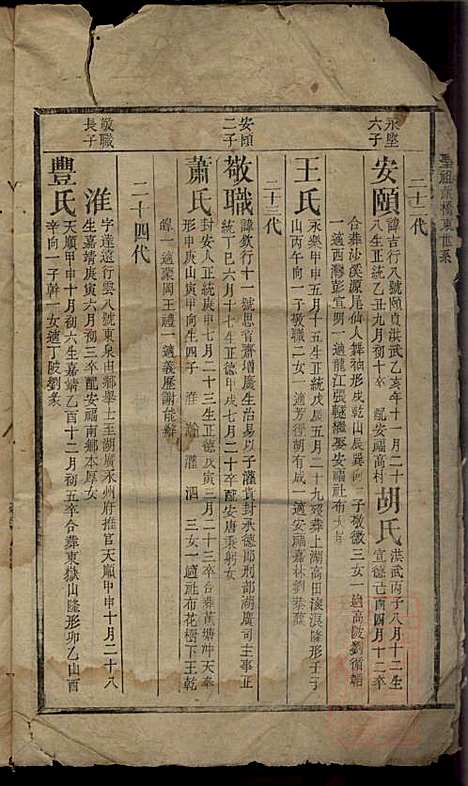 二十二代
永堅
六子
安頤
諱吉行八號頤貞洪武乙亥年十一月二十
八生正統乙丑九月初十卒 配安福高村
胡氏
洪武丙子八月十二生
宣德己酉四月十二卒
合葬沙溪源尾仙人舞袖形戌乾山辰巽向 子敬徵三女一適高陂劉循輔
一適西灣彭宣男一適龍江張
二十三代
王氏
永樂甲申五月十五生正統戊辰五月二十九歿葬上湖高田滾浪隆形子子
山丙午向一子敬職二女一適芳徑胡有成一適安福嘉林劉
安頤
二子
敬職
諱欽行十一號思省齋增廣生治易以子灌貴封承德郎刑部湖廣司主事正
統丁巳六月十七生正德甲戌七月二十卒配安唐
蕭氏
封安人正統庚申七月二十三生正德戊寅三月二十三卒合葬黃塘沖天奉
形申庚山寅甲向生四子 淮 瀚 灌 泗 三女一適社布花樹下王乾
一適濠岡王禮一適義歷謝能
二十四代
敬職
長子
淮
字達遠行雲八號東泉由鄉舉士至湖廣永州府推官天順甲申十月二十八
生嘉靖庚寅六月初三卒配安福南鄉本厚女
豐氏
天順甲申十月初六生嘉靖乙酉十二月初五卒合葬東嶽山隆形卯乙山酉
辛向一子幹一女適丁陂劉